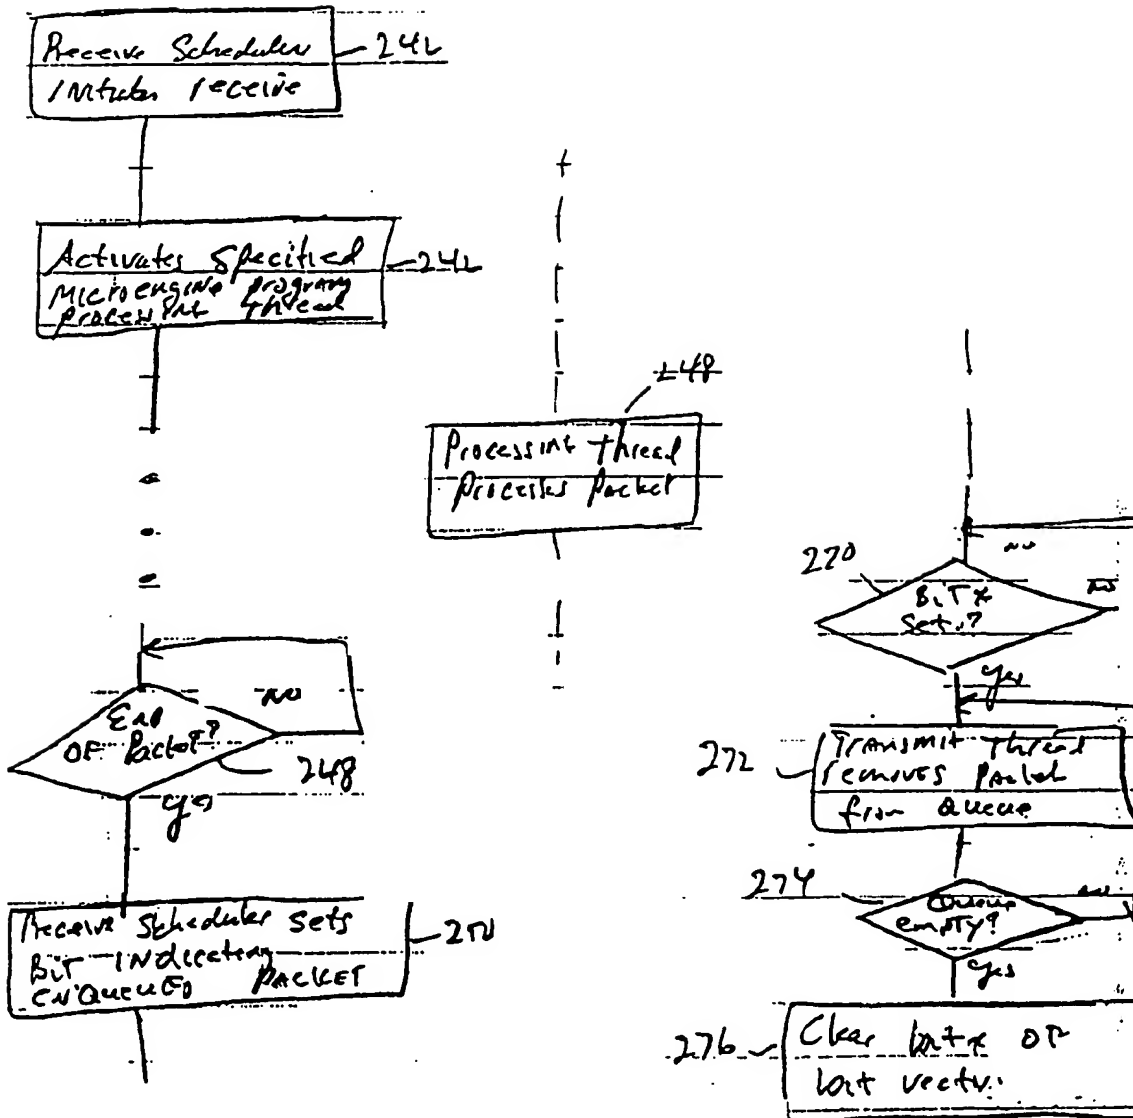 Receive Scheduler
Initiates receive
242
Activates Specified
Microengine program
processing thread
242
Processing thread
processes packet
248
End
OF Packet?
NO
248
yes
Receive Scheduler Sets
Bit INdicating
ENQUEUED PACKET
250
270
BiT x
Set?
NO
NO
yes
272
Transmit thread
removes Packet
from Queue
274
Queue
empty?
no
yes
276
Clear bit x OF
bit vector